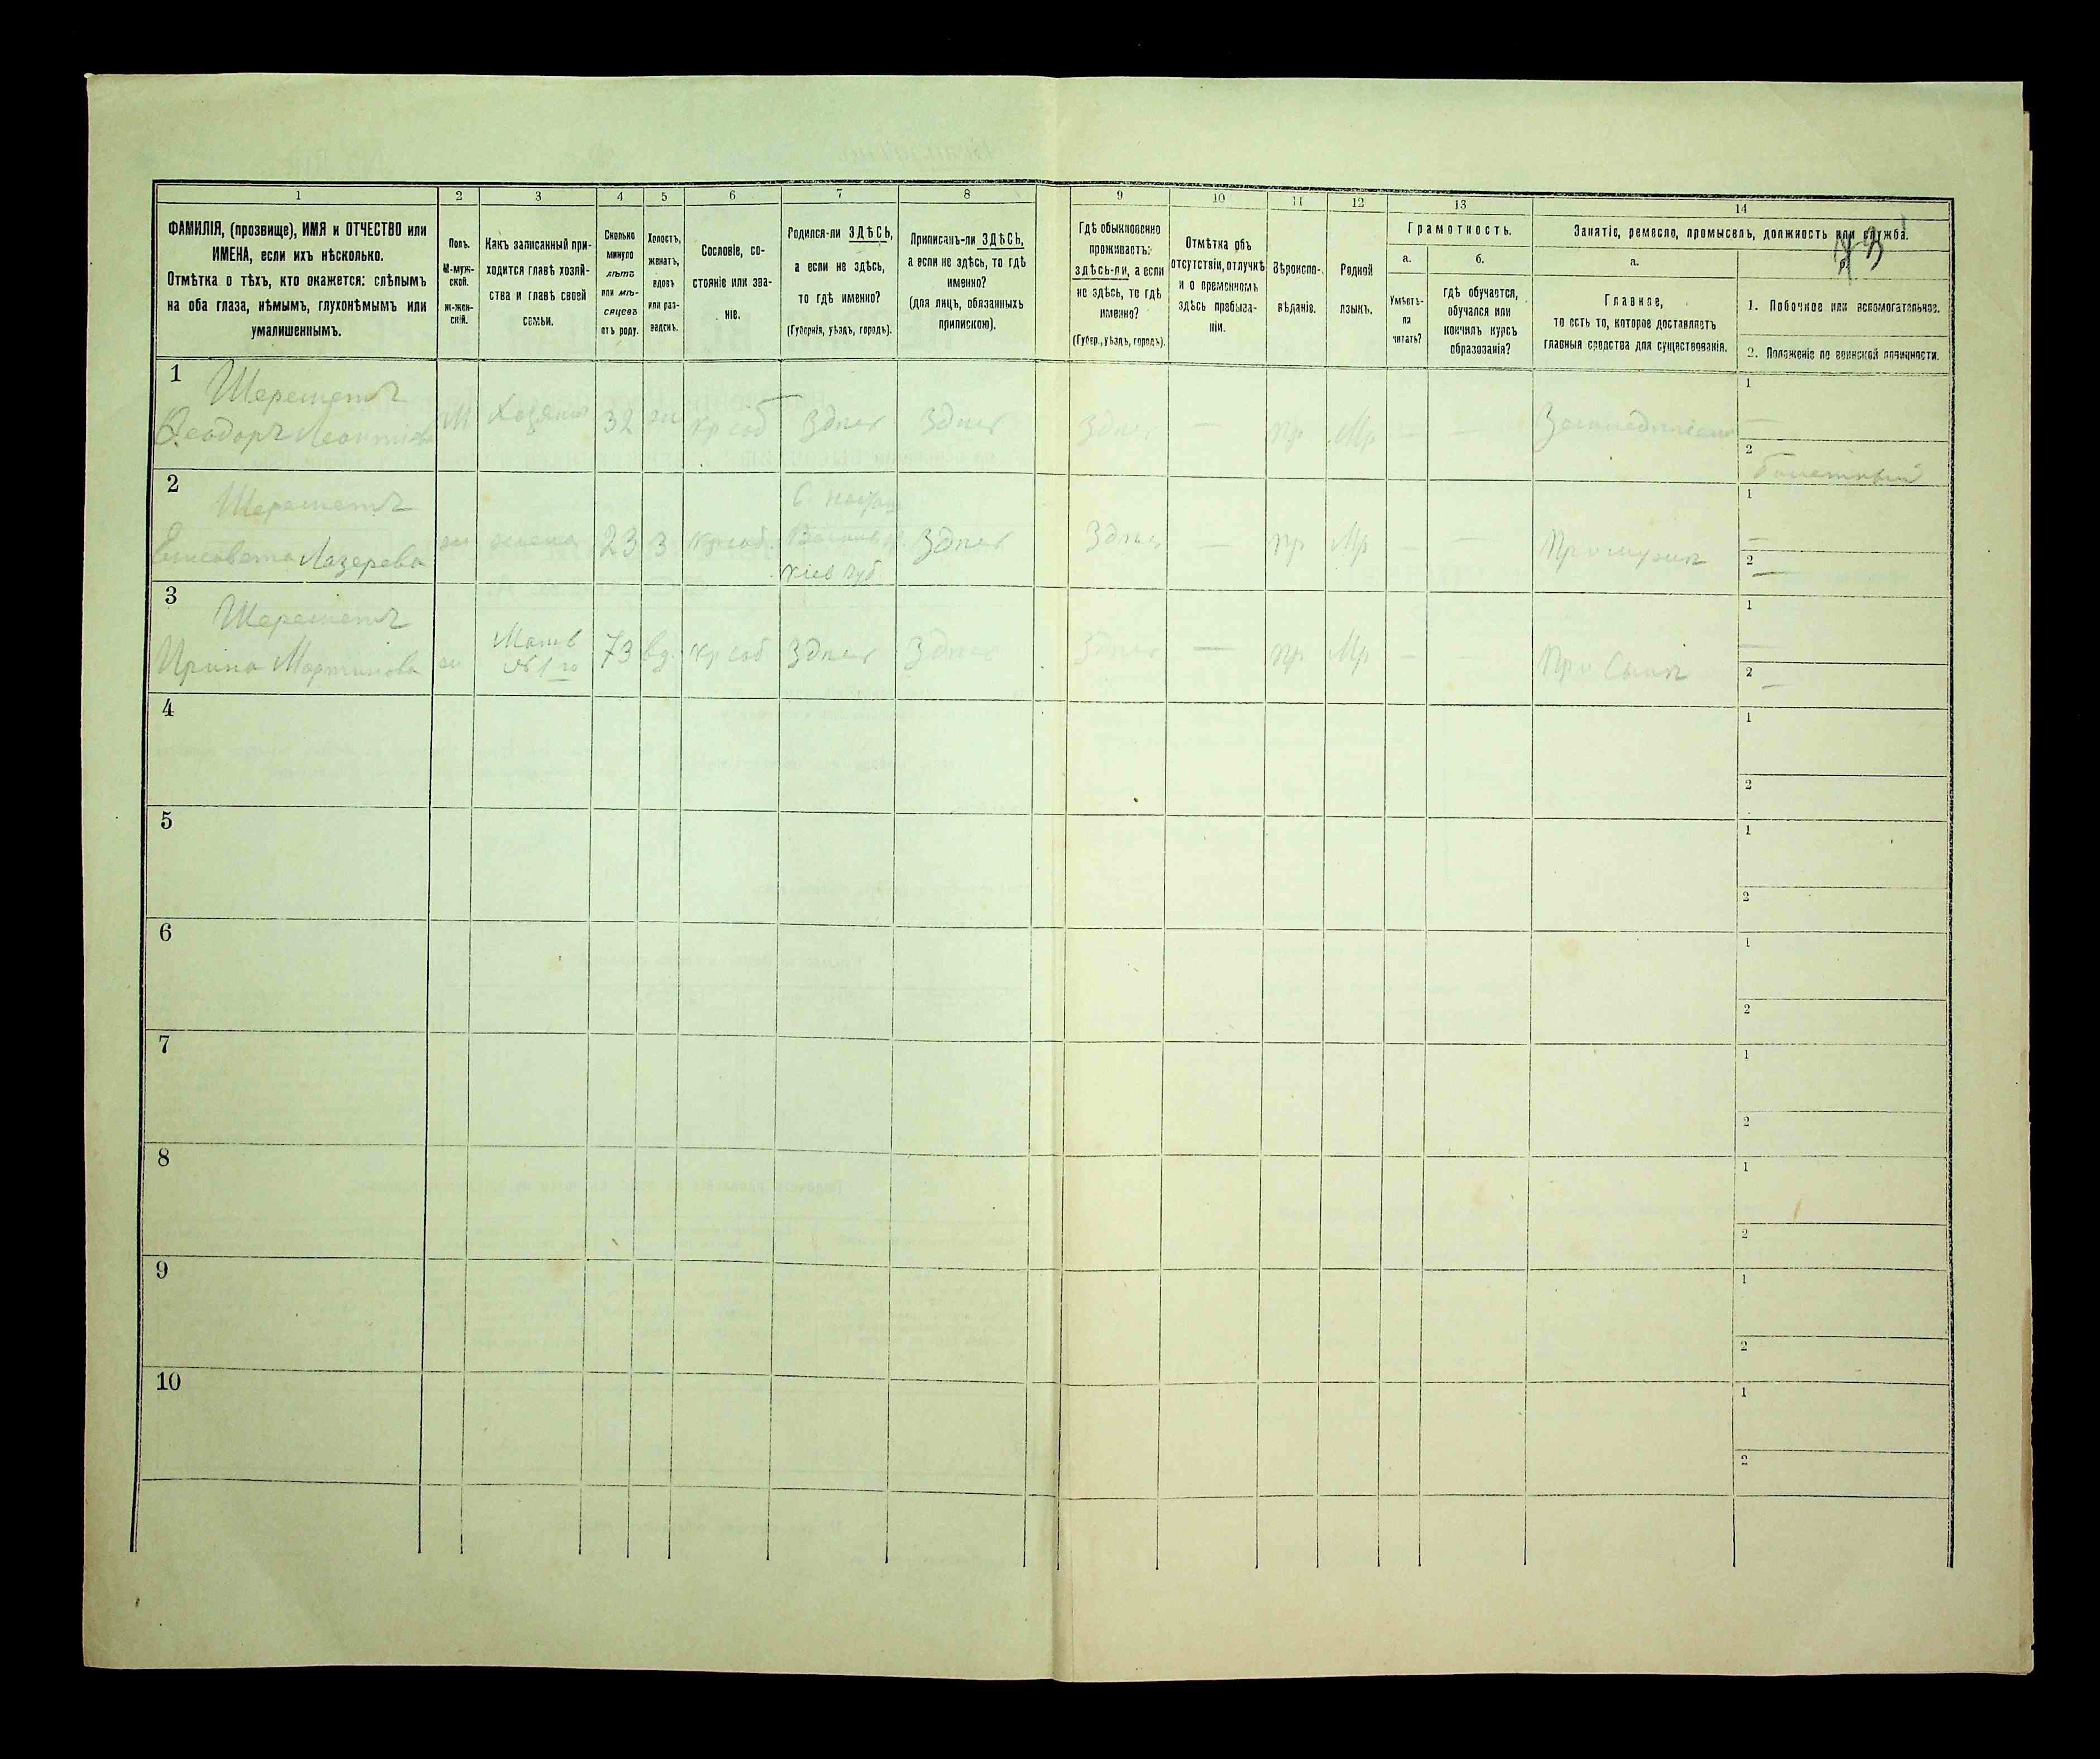 1 2 3 4 5 6 7 8 9 10 11 12 13 14
ФАМИЛІЯ, (прозвище), ИМЯ и ОТЧЕСТВО или
ИМЕНА, если ихъ нѣсколько.
Отмѣтка о тѣхъ, кто окажется: слѣпымъ
на оба глаза, нѣмымъ, глухонѣмымъ или
умалишеннымъ.
Полъ.
М-муж-
ской.
ж-жен-
скій.
Какъ записанный при-
ходится главѣ хозяй-
ства и главѣ своей
семьи.
Сколько
минуло
лѣтъ
или мѣ-
сяцевъ
отъ роду.
Холостъ,
женатъ,
вдовъ
или раз-
веденъ.
Сословіе, со-
стояніе или зва-
ніе.
Родился-ли ЗДѢСЬ,
а если не здѣсь,
то гдѣ именно?
(Губернія, уѣздъ, городъ).
Приписанъ-ли ЗДѢСЬ,
а если не здѣсь, то гдѣ
именно?
(для лицъ, обязанныхъ
припискою).
Гдѣ обыкновенно
проживаетъ:
здѣсь-ли, а если
не здѣсь, то гдѣ
именно?
(Губер., уѣздъ, городъ).
Отмѣтка объ
отсутствіи, отлучкѣ
и о временномъ
здѣсь пребыва-
ніи.
Вѣроиспо-
вѣданіе.
Родной
языкъ.
Грамотность.
а.
Умѣетъ-
ли
читать?
б.
гдѣ обучается,
обучался или
кончилъ курсъ
образованія?
Занятіе, ремесло, промыселъ, должность или служба.
а.
Главное,
то есть то, которое доставляетъ
главныя средства для существованія.
б.
1. Побочное или вспомогательное.
2. Положеніе по воинской повинности.
1
Шереметъ
Ѳеодоръ Леонтіевъ
М
Хозяинъ
32
жн
кр соб
Здесь
Здесь
Здесь
—
пр
Мр
—
—
Земледѣліе
1
—
2
2
Шереметъ
Елисовета Лазерева
жн
жена
23
З
кр соб.
Кіев губ.
Здесь
Здесь
—
пр
Мр
—
—
При мужѣ
1
—
2
—
3
Шереметъ
Ирина Мартинова
жн
Мать
№ 1го
73
вд.
кр соб
Здесь
Здесь
Здесь
—
пр
Мр
—
—
При Сынѣ
1
—
2
—
4
1
2
5
1
2
6
1
2
7
1
2
8
1
2
9
1
2
10
1
2